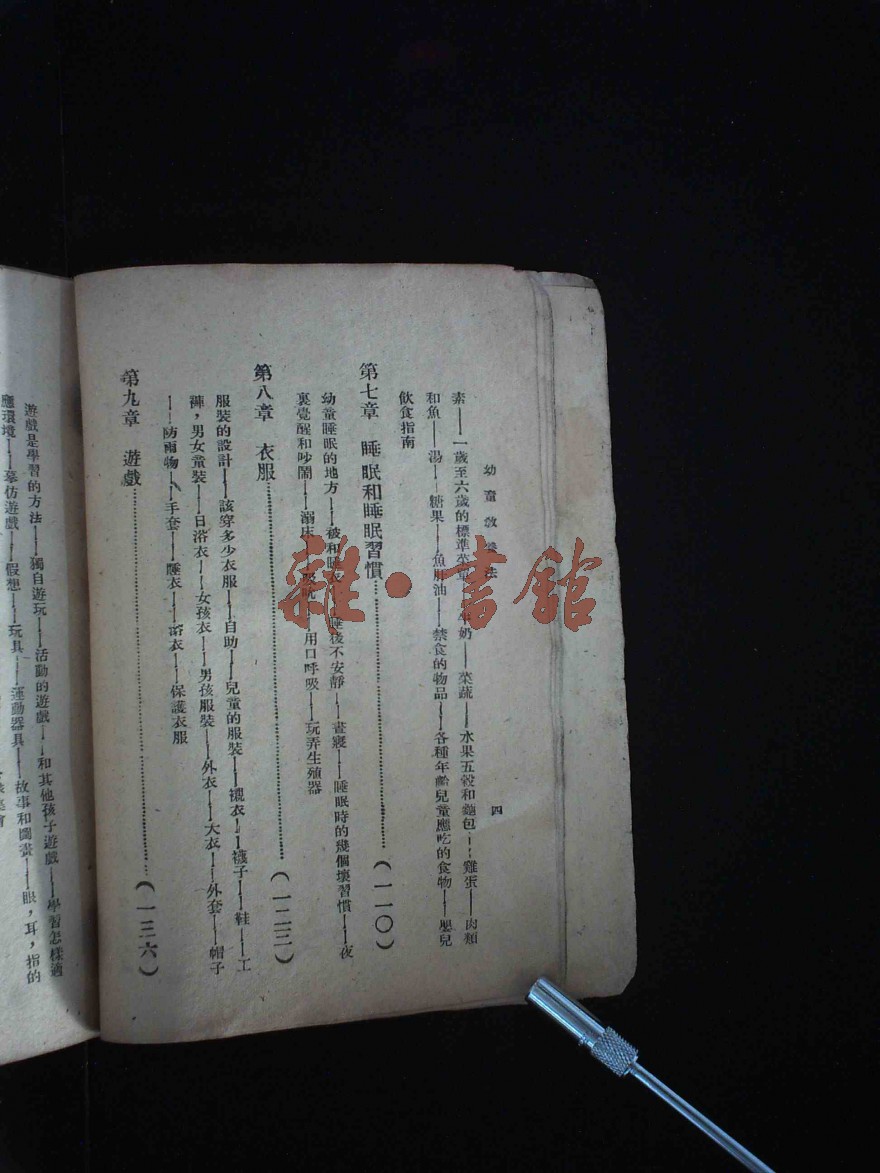 幼童教養法
四
素——一歲至六歲的標準菜單——牛奶——菜蔬——水果五穀和麵包——雞蛋——肉類
和魚——湯——糖果——魚肝油——禁食的物品——各種年齡兒童應吃的食物——嬰兒
飲食指南
第七章 睡眠和睡眠習慣……(一一〇)
幼童睡眠的地方——被和睡衣——睡後不安靜——晝寢——睡眠時的幾個壞習慣——夜
裏覺醒和吵鬧——溺床——吸吮——用口呼吸——玩弄生殖器
第八章 衣服……(一二三)
服裝的設計——該穿多少衣服——自助——兒童的服裝——襯衣——襪子——鞋——工
褲,男女童裝——日浴衣——女孩衣——男孩服裝——外衣——大衣——外套——帽子
——防雨物——手套——睡衣——浴衣——保護衣服
第九章 遊戲……(一三六)
遊戲是學習的方法——獨自遊玩——活動的遊戲——和其他孩子遊戲——學習怎樣適
應環境——摹仿遊戲——假想——玩具——運動器具——故事和圖畫——眼,耳,指的
雜·書館